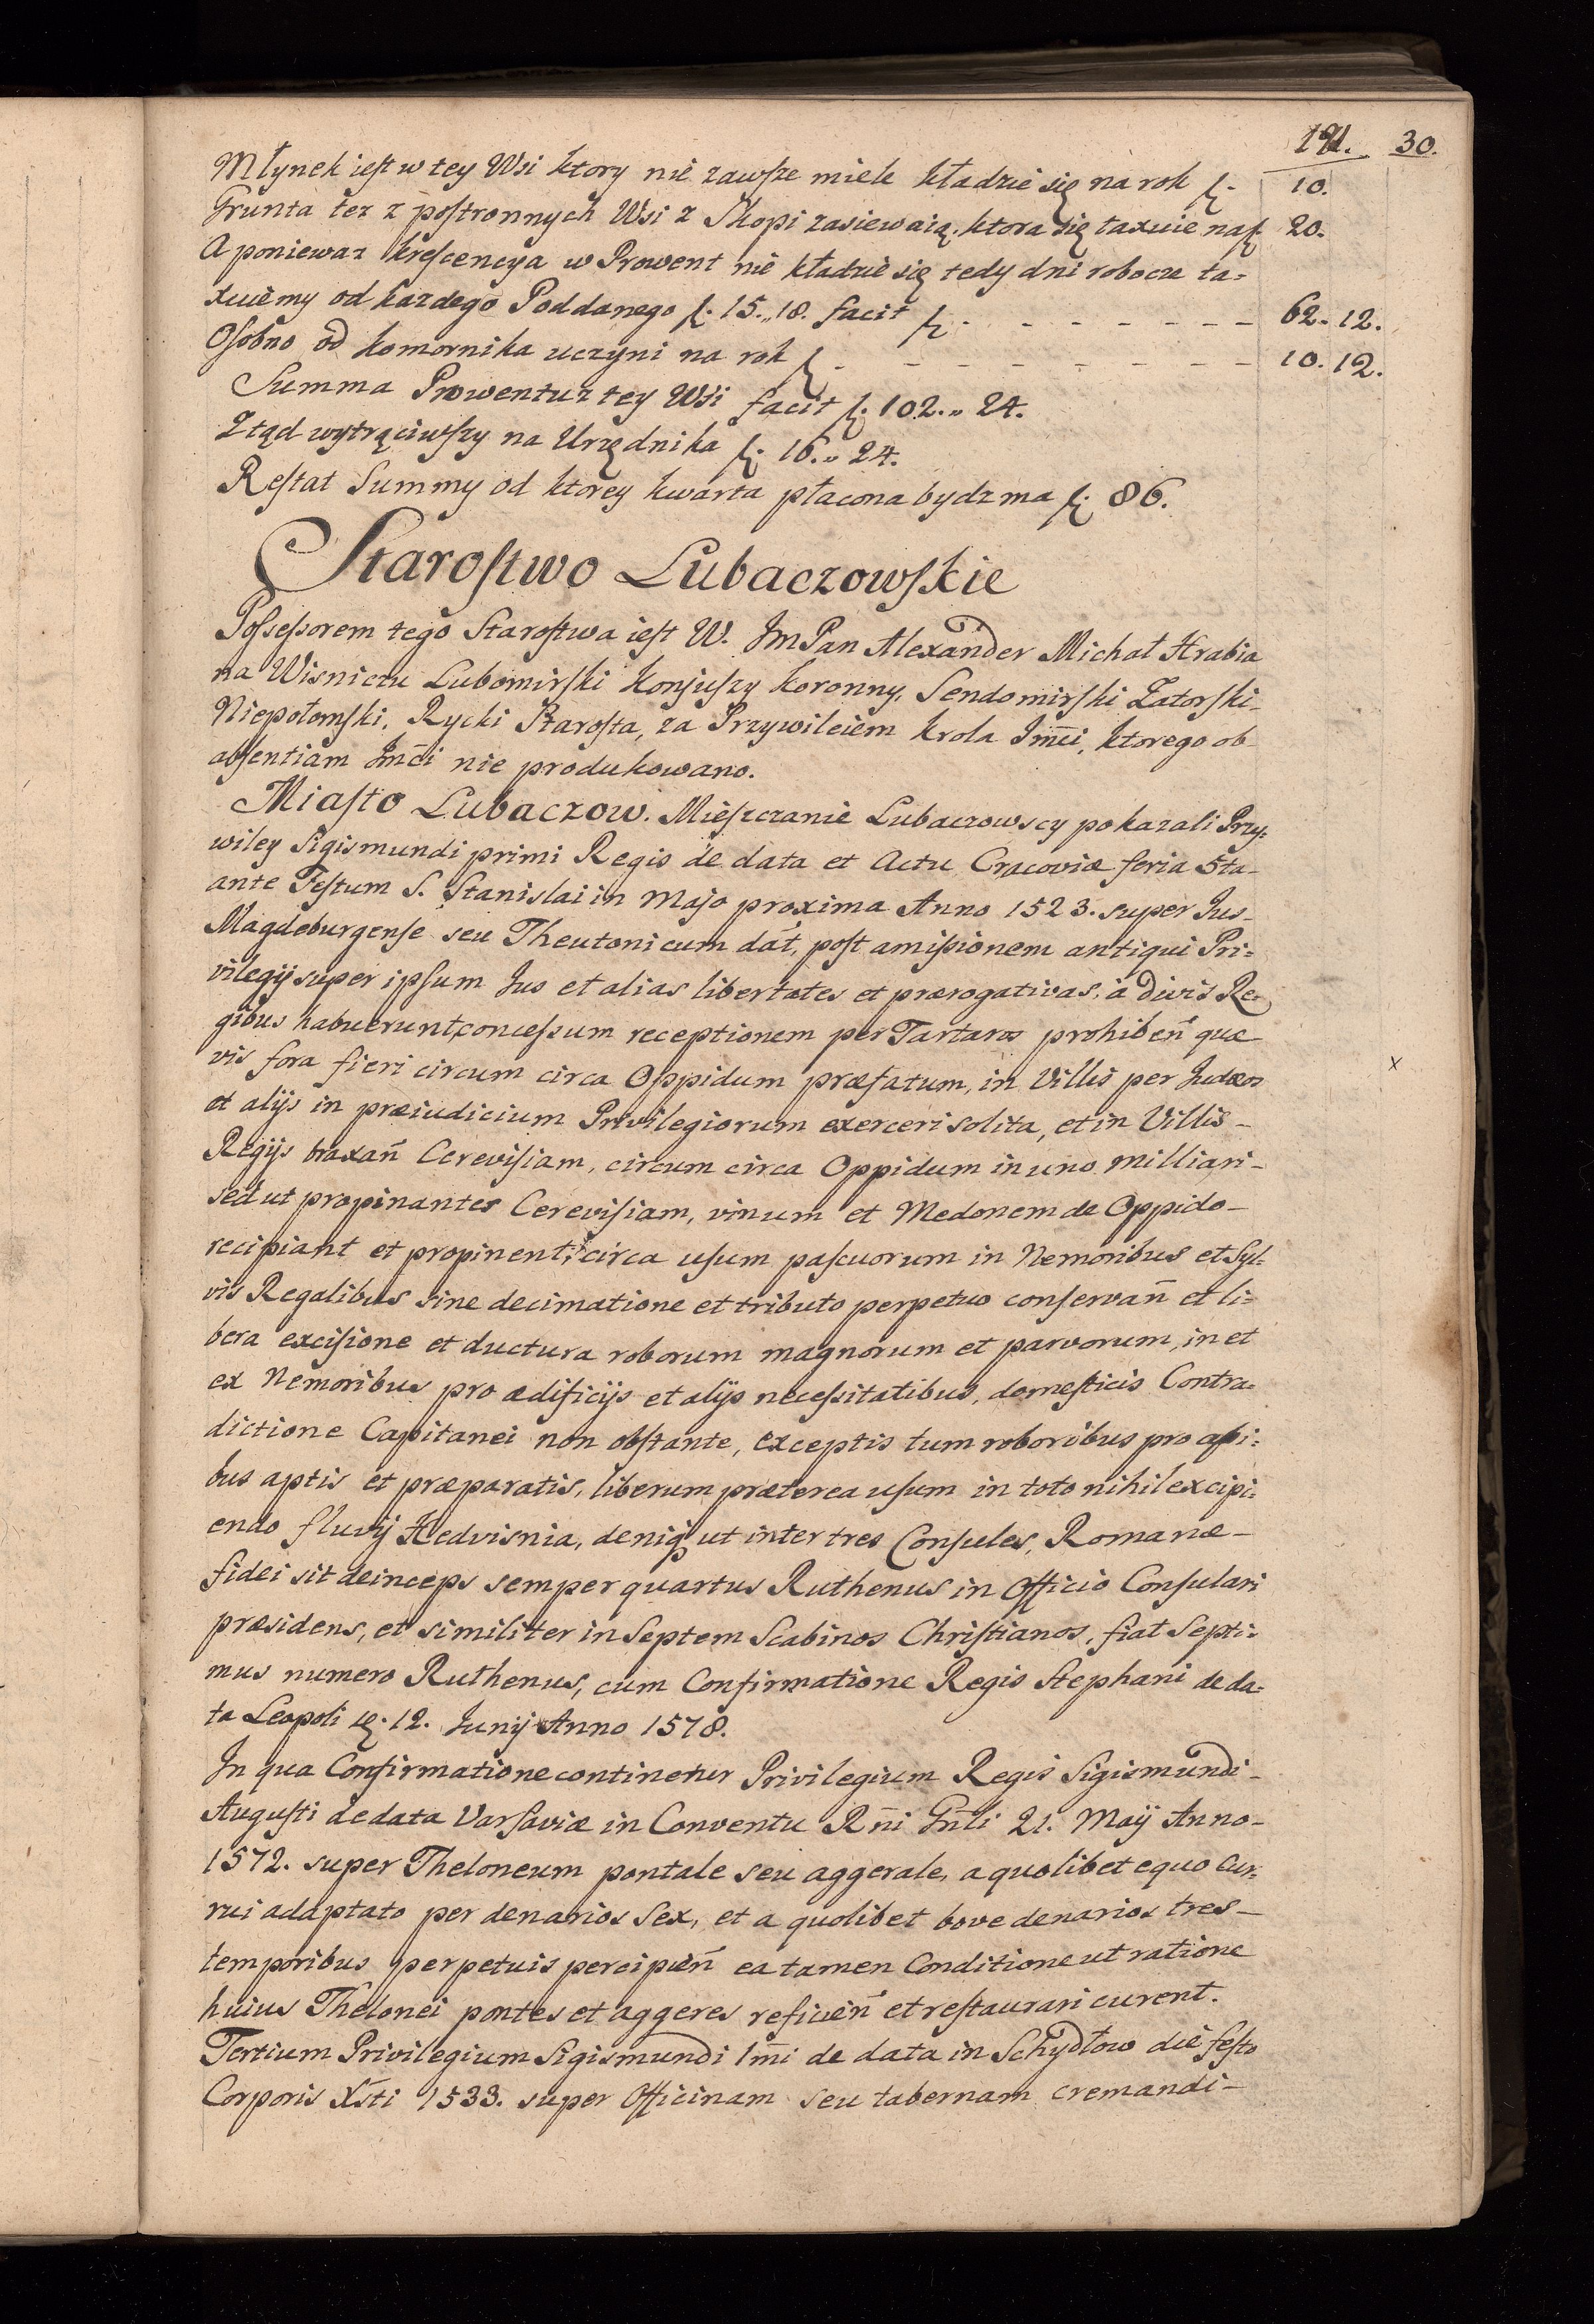 191. 30.
Młynek iest w tey Wsi ktory nie zawsze miele kładzie się na rok f. 10.
Grunta tez z postronnych Wsi z Skopi zasiewaią, ktora się taxuie na f. 20.
A poniewaz krescencya w Prowent nie kładzie się tedy dni robocze ta=
xuiemy od kazdego Poddanego f. 15.„18. facit f. - - - - - - - 62. 12.
Osobno od komornika uczyni na rok f. - - - - - - - - 10. 12.
Summa Prowentu z tey Wsi facit f. 102.„ 24.
Ztąd wytrąciwszy na Urzędnika f. 16.„ 24.
Restat Summy od ktorey kwarta płacona bydz ma f. 86.
Starostwo Lubaczowskie
Possessorem tego Starostwa iest W. JmPan Alexander Michał Hrabia
na Wisniczu Lubomirski Konjuszy Koronny, Sendomirski Zatorski-
Niepołomski, Rycki Starosta, za Przywileiem Krola Jm̄ci, ktorego ob-
absentiam Jm̄ci nie produkowano.
Miasto Lubaczow. Mieszczanie Lubaczowscy pokazali Przy=
wiley Sigismundi primi Regis de data et Actu Cracoviæ feria 5ta-
ante Festum S. Stanislai in Majo proxima Anno 1523. super Jus-
Magdeburgense seu Theutonicum dat, post amissionem antiqui Pri=
vilegij super ipsum Jus et alias libertates et prærogativas, a divis Re=
gibus habuerunt, concessum receptionem per Tartaros prohiben̄ quæ-
vis fora fieri circum circa Oppidum præfatum, in Villis per Judæos x
et alijs in præiudicium Privilegiorum exerceri solita, et in Villis-
Regijs braxan̄ Cerevisiam, circum circa Oppidum in uno milliari-
sed ut propinantes Cerevisiam, vinum et Medonem de Oppido-
recipiant et propinent, circa usum pascuorum in Nemoribus et Syl=
vis Regalibus sine decimatione et tributo perpetuo conservan̄ et li=
bera excisione et ductura roborum magnorum et parvorum, in et
ex Nemoribus pro ædificijs et alijs necessitatibus, domesticis Contra=
dictione Capitanei non obstante, exceptis tum roboribus pro api=
bus aptis et præparatis, liberum præterea usum in toto nihil excipi=
endo fluvij Hedvisnia, deniq ut inter tres Consules, Romanæ-
fidei sit deinceps semper quartus Ruthenus in Officio Consulari
præsidens, et similiter in Septem Scabinos Christianos, fiat Septi=
mus numero Ruthenus, cum Confirmatione Regis Stephani de da=
ta Leopoli 12. Junij Anno 1578.
In qua Confirmatione continetur Privilegium Regis Sigismundi-
Augusti de data Varsaviæ in Conventu Rn̄i Gn̄li 21. Maij Anno-
1572. super Theloneum pontale seu aggerale, a quolibet equo cur=
rui adaptato per denarios Sex, et a quolibet bove denarios tres-
temporibus perpetuis percipien̄ ea tamen Conditione ut ratione
huius Thelonei pontes et aggeres reficien̄ et restaurari curent.
Tertium Privilegium Sigismundi 1m̄i de data in Schydłow die festo
Corporis Xsti 1533. super Officinam seu tabernam cremandi-